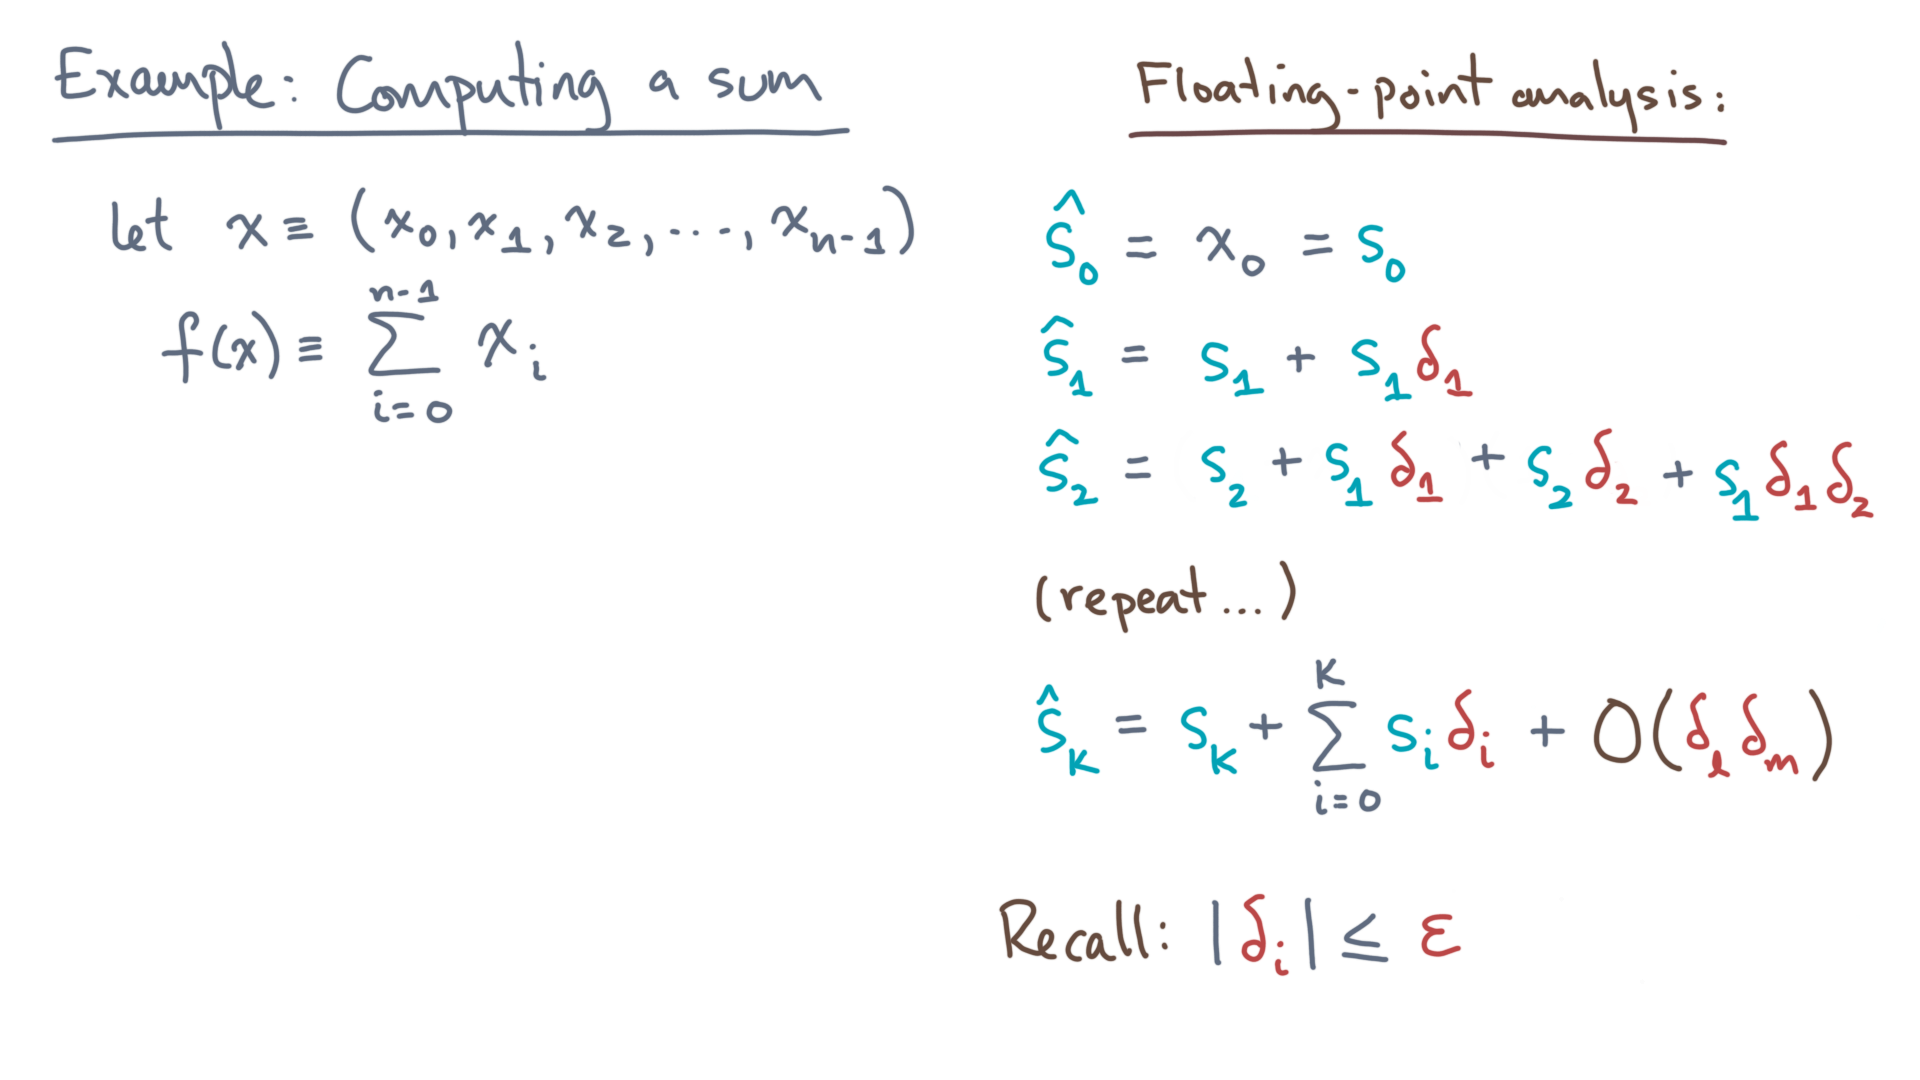 Example: Computing a sum
let x ≡ (x₀, x₁, x₂, ..., xₙ₋₁)
f(x) ≡ ∑_{i=0}^{n-1} xᵢ
Floating-point analysis:
ŝ₀ = x₀ = s₀
ŝ₁ = s₁ + s₁δ₁
ŝ₂ = s₂ + s₁δ₁ + s₂δ₂ + s₁δ₁δ₂
(repeat...)
ŝ_k = s_k + ∑_{i=0}^{k} sᵢδᵢ + O(δ_l δ_m)
Recall: |δᵢ| ≤ ε